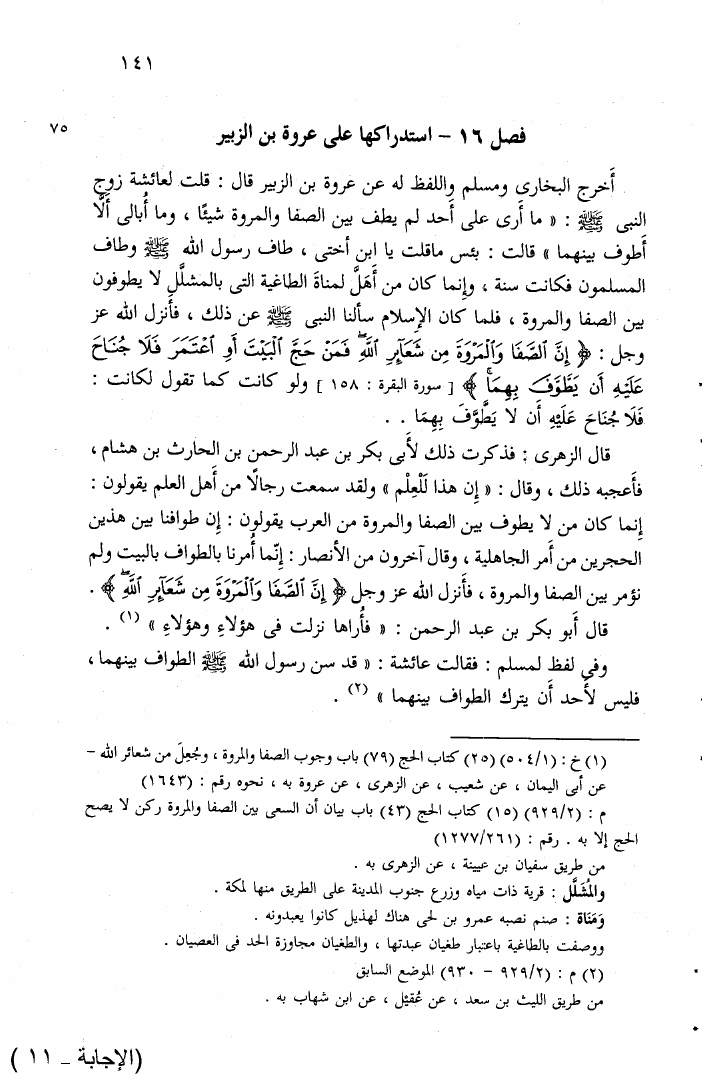 ١٤١
٧٥
فصل ١٦ - استدراكها على عروة بن الزبير
أخرج البخارى ومسلم واللفظ له عن عروة بن الزبير قال : قلت لعائشة زوج
النبى ﷺ : « ما أرى على أحد لم يطف بين الصفا والمروة شيئًا ، وما أُبالى ألَّا
أطوف بينهما » قالت : بئس ماقلت يا ابن أختى ، طاف رسول الله ﷺ وطاف
المسلمون فكانت سنة ، وإنما كان من أَهَلَّ لمناةَ الطاغية التى بالمشلَّل لا يطوفون
بين الصفا والمروة ، فلما كان الإسلام سألنا النبى ﷺ عن ذلك ، فأنزل الله عز
وجل : ﴿ إِنَّ ٱلصَّفَا وَٱلْمَرْوَةَ مِن شَعَآئِرِ ٱللَّهِۖ فَمَنْ حَجَّ ٱلْبَيْتَ أَوِ ٱعْتَمَرَ فَلَا جُنَاحَ
عَلَيْهِ أَن يَطَّوَّفَ بِهِمَاۚ ﴾ [ سورة البقرة : ١٥٨ ] ولو كانت كما تقول لكانت :
فَلَا جُنَاحَ عَلَيْهِ أَن لَا يَطَّوَّفَ بِهِمَا . .
قال الزهرى : فذكرت ذلك لأبى بكر بن عبد الرحمن بن الحارث بن هشام ،
فأعجبه ذلك ، وقال : « إن هذا لَلْعِلْم » ولقد سمعت رجالًا من أهل العلم يقولون :
إنما كان من لا يطوف بين الصفا والمروة من العرب يقولون : إن طوافنا بين هذين
الحجرين من أمر الجاهلية ، وقال آخرون من الأنصار : إنّما أُمرنا بالطواف بالبيت ولم
نؤمر بين الصفا والمروة ، فأنزل الله عز وجل ﴿ إِنَّ ٱلصَّفَا وَٱلْمَرْوَةَ مِن شَعَآئِرِ ٱللَّهِۖ ﴾ .
قال أبو بكر بن عبد الرحمن : « فأُراها نزلت فى هؤلاءِ وهؤلاءِ » (١) .
وفى لفظ لمسلم : فقالت عائشة : « قد سن رسول الله ﷺ الطواف بينهما ،
فليس لأحد أن يترك الطواف بينهما » (٢) .
(١) خ : (٥٠٤/١) (٢٥) كتاب الحج (٧٩) باب وجوب الصفا والمروة ، وجُعِلَ من شعائر الله -
عن أبى اليمان ، عن شعيب ، عن الزهرى ، عن عروة به ، نحوه رقم : (١٦٤٣)
م : (٩٢٩/٢) (١٥) كتاب الحج (٤٣) باب بيان أن السعى بين الصفا والمروة ركن لا يصح
الحج إلا به . رقم : (١٢٧٧/٢٦١)
من طريق سفيان بن عيينة ، عن الزهرى به .
والمُشَلَّل : قرية ذات مياه وزرع جنوب المدينة على الطريق منها لمكة .
وَمَنَاة : صنم نصبه عمرو بن لحى هناك لهذيل كانوا يعبدونه .
ووصفت بالطاغية باعتبار طغيان عبدتها ، والطغيان مجاوزة الحد فى العصيان .
(٢) م : (٩٢٩/٢ - ٩٣٠) الموضع السابق
من طريق الليث بن سعد ، عن عُقَيْل ، عن ابن شهاب به .
(الإجابة - ١١ )